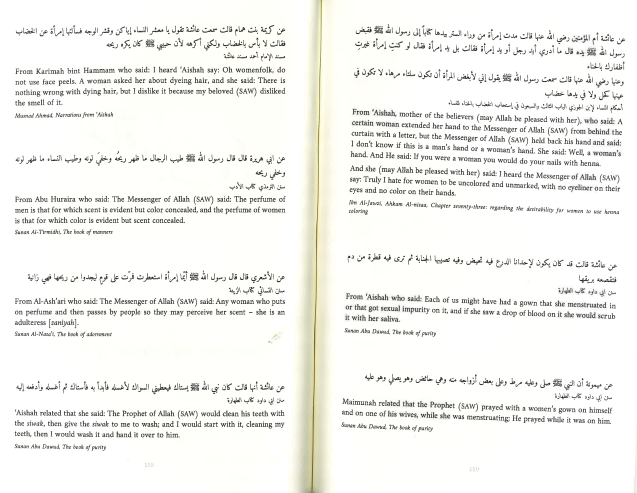 عن كريمة بنت همام قالت سمعت عائشة تقول يا معشر النساء إياكن وقشر الوجه فسألتها إمرأة عن الخضاب
فقالت لا بأس بالخضاب ولكني أكرهه لأن حبيبي ﷺ كان يكره ريحه
مسند الإمام أحمد مسند عائشة
From Karimah bint Hammam who said: I heard 'Aishah say: Oh womenfolk, do
not use face peels. A woman asked her about dyeing hair, and she said: There is
nothing wrong with dying hair, but I dislike it because my beloved (SAW) disliked
the smell of it.
Musnad Ahmad, Narrations from 'Aishah
عن إبي هريرة قال قال رسول الله ﷺ طيب الرجال ما ظهر ريحُه وخفيَ لونه وطيب النساء ما ظهر لونه
وخفي ريحه
سنن الترمذي كتاب الأدب
From Abu Huraira who said: The Messenger of Allah (SAW) said: The perfume of
men is that for which scent is evident but color concealed, and the perfume of women
is that for which color is evident but scent concealed.
Sunan Al-Tirmidhi, The book of manners
عن الأشعري قال قال رسول الله ﷺ أيَّما إمرأة استعطرت فمرّت على قومٍ ليجدوا من ريحها فهي زانية
سنن النسائي كتاب الزينة
From Al-Ash'ari who said: The Messenger of Allah (SAW) said: Any woman who puts
on perfume and then passes by people so they may perceive her scent – she is an
adulteress [zaniyah].
Sunan Al-Nasa'i, The book of adornment
عن عائشة أنها قالت كان نبي الله ﷺ يستاك فيعطيني السواك لأغسله فأبدأ به فأستاك ثم أغسله وأدفعه إليه
سنن إبي داود كتاب الطهارة
'Aishah related that she said: The Prophet of Allah (SAW) would clean his teeth with
the siwak, then give the siwak to me to wash; and I would start with it, cleaning my
teeth, then I would wash it and hand it over to him.
Sunan Abu Dawud, The book of purity
عن عائشة أم المؤمنين رضي الله عنها قالت مدت إمرأة من وراء الستر بيدها كتاباً إلى رسول الله ﷺ فقبض
رسول الله ﷺ يده قال ما أدري أيد رجل أو يد إمرأة فقالت بل يد إمرأة فقال لو كنتِ إمرأة غيرتِ
أظفارك بالحناء
وعنها رضي الله عنها قالت سمعت رسول الله ﷺ يقول إني لأبغض المرأة أن تكون سلتاء مرهاء لا تكون في
عينها كحل ولا في يدها خضاب
أحكام النساء لإبن الجوزي الباب الثالث والسبعون في إستحباب الخضاب بالحناء للنساء
From 'Aishah, mother of the believers (may Allah be pleased with her), who said: A
certain woman extended her hand to the Messenger of Allah (SAW) from behind the
curtain with a letter, but the Messenger of Allah (SAW) held back his hand and said:
I don't know if this is a man's hand or a woman's hand. She said: Well, a woman's
hand. And He said: If you were a woman you would do your nails with henna.
And she (may Allah be pleased with her) said: I heard the Messenger of Allah (SAW)
say: Truly I hate for women to be uncolored and unmarked, with no eyeliner on their
eyes and no color on their hands.
Ibn Al-Jawzi, Ahkam Al-nisaa, Chapter seventy-three: regarding the desirability for women to use henna
coloring
عن عائشة قالت قد كان يكون لإحدانا الدرع فيه تحيض وفيه تصيبها الجنابة ثم ترى فيه قطرة من دم
فتقصعه بريقها
سنن إبي داود كتاب الطهارة
From 'Aishah who said: Each of us might have had a gown that she menstruated in
or that got sexual impurity on it, and if she saw a drop of blood on it she would scrub
it with her saliva.
Sunan Abu Dawud, The book of purity
عن ميمونة أن النبي ﷺ صلى وعليه مرط وعلى بعض أزواجه منه وهي حائض وهو يصلي وهو عليه
سنن إبي داود كتاب الطهارة
Maimunah related that the Prophet (SAW) prayed with a women's gown on himself
and on one of his wives, while she was menstruating; He prayed while it was on him.
Sunan Abu Dawud, The book of purity